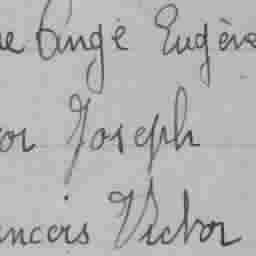 Eugène
or Joseph
ncois Victor